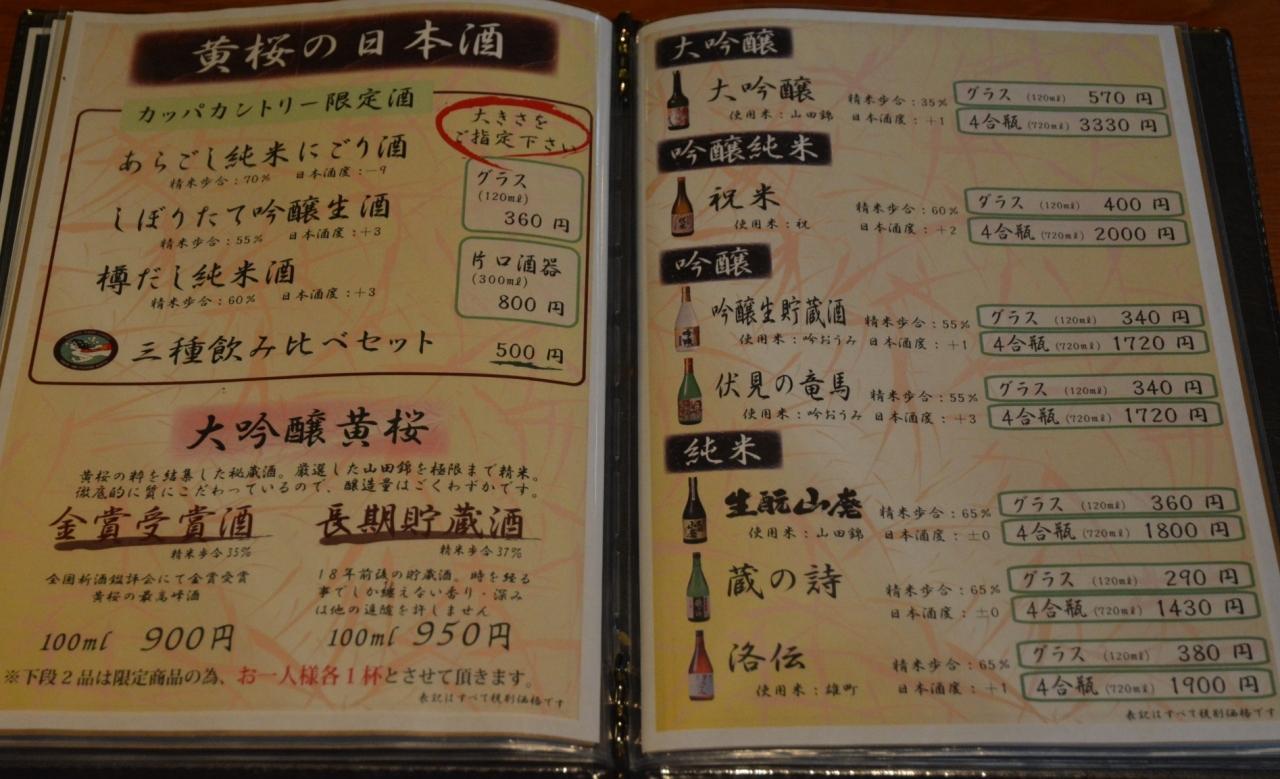 黄桜の日本酒
カッパカントリー限定酒
大きさを
ご指定下さい
あらごし純米にごり酒
精米歩合：70％ 日本酒度：−9
しぼりたて吟醸生酒
精米歩合：55％ 日本酒度：+3
樽だし純米酒
精米歩合：60％ 日本酒度：+3
グラス
(120mℓ)
360 円
片口酒器
(300mℓ)
800 円
三種飲み比べセット 500 円
大吟醸黄桜
黄桜の粋を結集した秘蔵酒。厳選した山田錦を極限まで精米。
徹底的に質にこだわっているので、醸造量はごくわずかです。
金賞受賞酒
精米歩合35％
全国新酒鑑評会にて金賞受賞
黄桜の最高峰酒
100mℓ 900円
長期貯蔵酒
精米歩合37％
18年前後の貯蔵酒。時を経る
事でしか纏えない香り・深み
は他の追随を許しません
100mℓ 950円
※下段2品は限定商品の為、お一人様各1杯とさせて頂きます。
表記はすべて税別価格です
大吟醸
大吟醸 精米歩合：35％ グラス (120mℓ) 570 円
使用米：山田錦 日本酒度：+1 4合瓶 (720mℓ) 3330 円
吟醸純米
祝米 精米歩合：60％ グラス (120mℓ) 400 円
使用米：祝 日本酒度：+2 4合瓶 (720mℓ) 2000 円
吟醸
吟醸生貯蔵酒 精米歩合：55％ グラス (120mℓ) 340 円
使用米：吟おうみ 日本酒度：+1 4合瓶 (720mℓ) 1720 円
伏見の竜馬 精米歩合：55％ グラス (120mℓ) 340 円
使用米：吟おうみ 日本酒度：+3 4合瓶 (720mℓ) 1720 円
純米
生酛山廃 精米歩合：65％ グラス (120mℓ) 360 円
使用米：山田錦 日本酒度：±0 4合瓶 (720mℓ) 1800 円
蔵の詩 精米歩合：65％ グラス (120mℓ) 290 円
日本酒度：±0 4合瓶 (720mℓ) 1430 円
洛伝 精米歩合：65％ グラス (120mℓ) 380 円
使用米：雄町 日本酒度：+1 4合瓶 (720mℓ) 1900 円
表記はすべて税別価格です